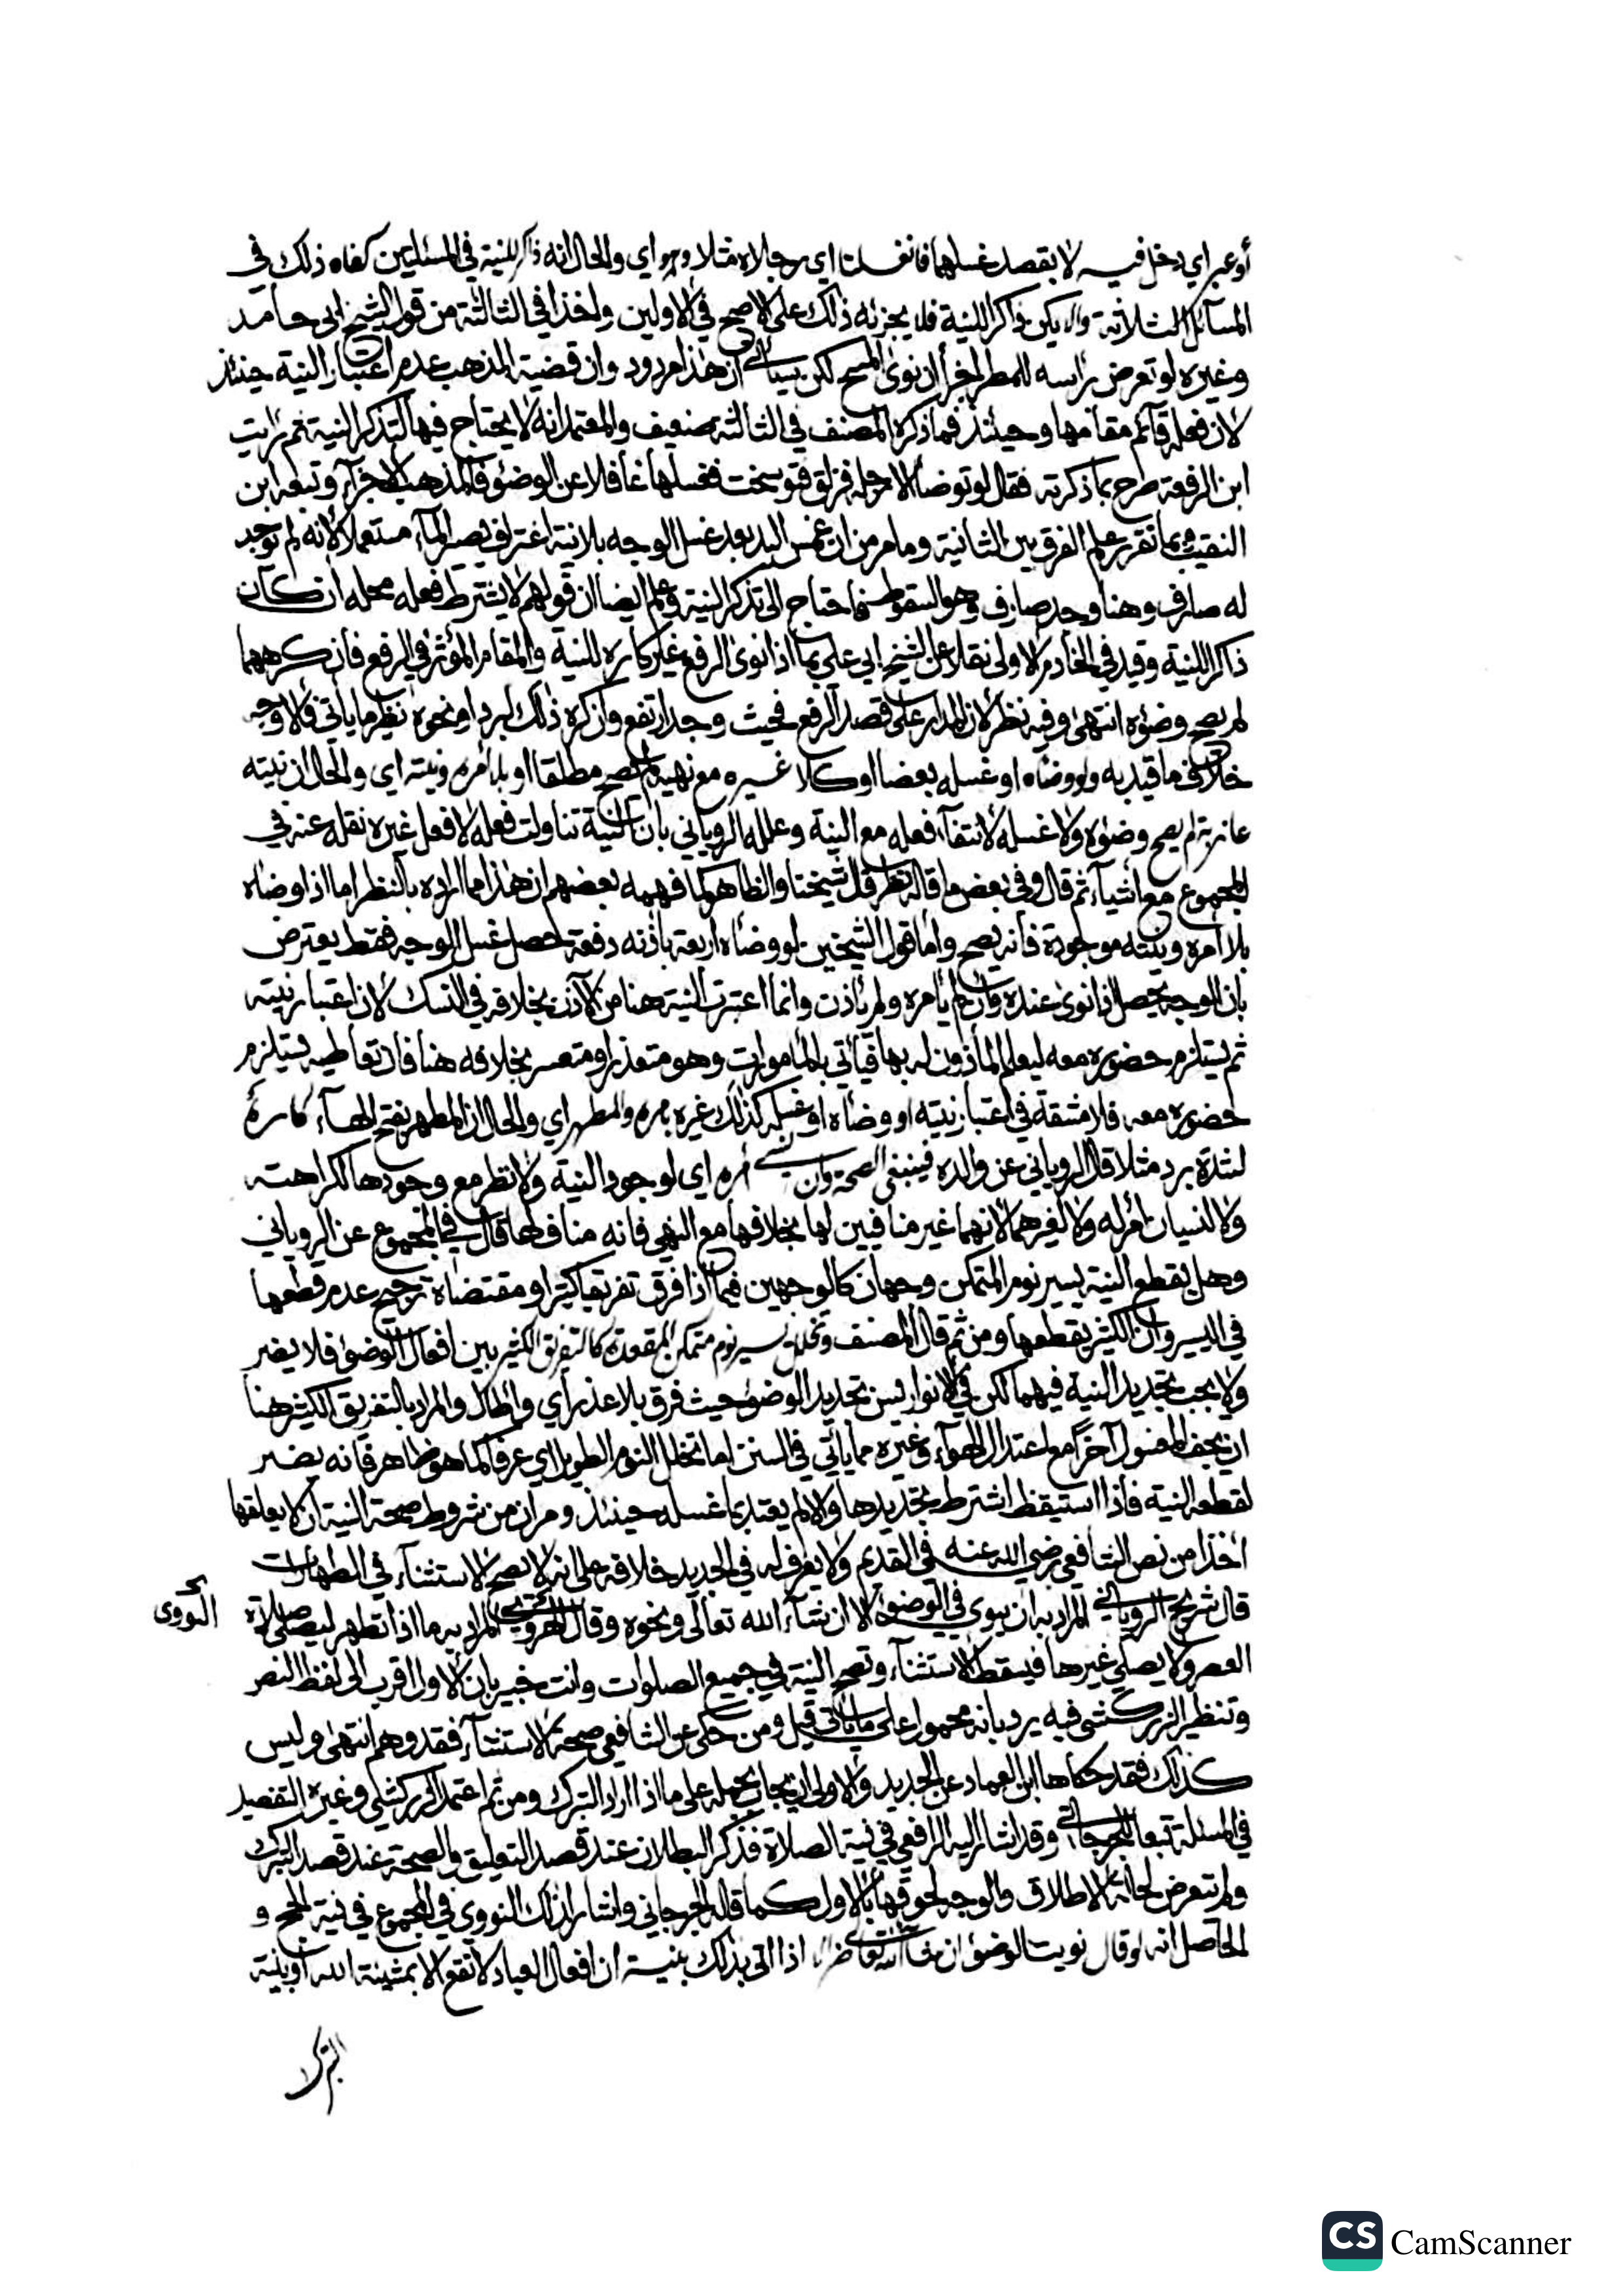 أو عبر اي دخل فيه لا بقصد غسلهما فانغسلتا اي رجلاه مثلا وهو اي والحال انه ذاكر للنية في المسئلتين كفاه ذلك في
المسآئل الثلاثة والا يكن ذاكرا للنية فلا يجزئه ذلك على الاصح في الاولين واخذا في الثالثة من قول الشيخ ابى حامد
وغيره لو تعرض رأسه للمطر اجزأ ان نوى المسح لكن سيأتي ان هذا مردود وان قضية المذهب عدم اعتبار النية حينئذ
لان فعله قآئم مقامها وحينئذ فما ذكره المصنف في الثالثة ضعيف والمعتمد انه لا يحتاج فيها لتذكر النية ثم رأيت
ابن الرفعة صرح بما ذكرته فقال لو توضأ الا رجله فزلق فتوسخت فغسلها غافلا عن الوضوء فالمذهب الاجزآء وتبعه ابن
النقيب وبما تقرر علم الفرق بين الثانية وما مر من ان غمس اليد بعد غسل الوجه بلا نية اغتراف يصير المآء مستعملا لانه لم توجد
له صارف وهنا وجد صارف وهو السقوط فاحتاج الى تذكر النية وعلم ايضا ان قولهم لا يشترط فعله محله ان كان
ذاكرا للنية وقيد في الخادم الاولى نقلا عن الشيخ ابي علي بما اذا نوى الرفع غير كاره للنية والمقام المؤثر في الرفع فان كرههما
لم يصح وضوءه انتهى وفيه نظر لان المدار على قصد الرفع فحيث وجد ارتفع وان كره ذلك لبرد او نحوه نظير ما يأتي فالاوجه
خلاف ما قيد به ولو وضاه او غسله بعضا او كلا غيره مع نهيه لم يصح مطلقا او بلا امره ونيته اي والحال ان نيته
عازبة لم يصح وضوءه ولا غسله لانتفآء فعله مع النية وعلله الروياني بان النية تناولت فعله لا فعل غيره نقله عنه في
المجموع مع اشيآء ثم قال وفي بعض ما قاله نظر قال شيخنا والظاهر كما فهمه بعضهم ان هذا مما اراده بالنظر اما اذا وضاه
بلا امره ونيته موجودة فانه يصح واما قول الشيخين لو وضأه اربعة باذنه دفعة حصل غسل الوجه فقط يعترض
بان الوجه يحصل اذا نوى عنده وان لم يأمره ولم يأذن وانما اعتبرت النية هنا من الآذن بخلافه في النسك لان اعتبار نيته
ثم يستلزم حضوره معه ليعلم المأذون له بها فيأتي بالمأمورات وهو متعذر او متعسر بخلافه هنا فان تعاطيه يستلزم
حضوره معه فلا مشقة في اعتبار نيته او وضأه او غسله كذلك غيره بامره والمطهر اي والحال ان المطهر بفتح الهآء كاره
لشدة برد مثلا قال الروياني عن والده فينبغي الصحة وان نسي امره اي لوجود النية ولا نظر مع وجودها لكراهته
ولا لنسيان امر له ولا لغيرهما لانهما غير منافيين لها بخلافها مع النهي فانه مناف لها قال في المجموع عن الروياني
وهل يقطع النية يسير نوم المتمكن وجهان كالوجهين فيما اذا فرق تفريقا كثيرا ومقتضاه ترجيح عدم قطعها
في اليسير وان الكثير يقطعها ومن ثم قال المصنف وتخلل يسير نوم متمكن المقعدة كالتفريق الكثير بين افعال الوضوء فلا يضر
ولا يجب تجديد النية فيهما لكن في الانوار يسن تجديد الوضوء حيث فرق بلا عذر أي وطال والمراد بالتفريق الكثير هنا
ان يجف المغسول آخرا مع اعتدال الهوآء وغيره مما يأتي في السنن اما تخلل النوم الطويل اي عرفا كما هو ظاهر فانه يضر
لقطعه النية فاذا استيقظ اشترط تجديدها والا لم يعتد بما غسله حينئذ ومر ان من شروط صحة النية ان لا يعلقها
اخذا من نص الشافعي رضي الله عنه في القديم ولا يعرف له في الجديد خلافه على انه لا يصح الاستثنآء في الطهارات
قال شريح الروياني المراد به ان ينوي في الوضوء الا ان شآء الله تعالى ونحوه وقال الهروي المراد به ما اذا تطهر ليصلي صلاة
النووى
العصر ولا يصلي غيرها فيسقط الاستثنآء وتصح النية في جميع الصلوات وانت خبير بان الاول اقرب الى لفظ النص
وتنظير الزركشي فيه يرد بانه محمول على ما يأتي قيل ومن حكى عن الشافعي صحة الاستثنآء فقد وهم انتهى وليس
كذلك فقد حكاها ابن العماد عن الجديد والاولى ان يجاب بحمله على ما اذا اراد التبرك ومن ثم اعتمد الزركشي وغيره التفصيل
في المسئلة تبعا للجرجاني وقد اشار اليه الرافعي في نية الصلاة فذكر البطلان عند قصد التعليق والصحة عند قصد التبرك
ولم يتعرض لحالة الاطلاق والوجه لحوقها بالاول كما قاله الجرجاني واشار لذلك النووي في المجموع في نية الحج و
الحاصل انه لو قال نويت الوضوء ان شآء الله تعالى اذا اتى بذلك بنية ان افعال العباد لا تقع الا بمشيئة الله او بنية
التبرك
CS CamScanner